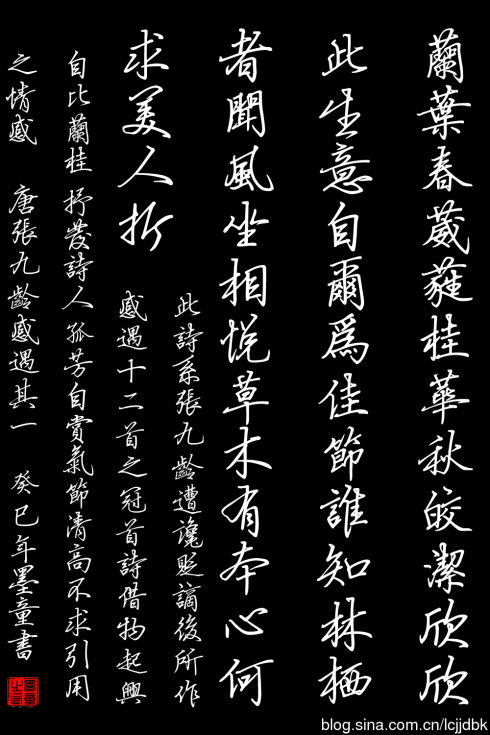 蘭葉春葳蕤桂華秋皎潔欣欣
此生意自爾為佳節誰知林栖
者聞風坐相悅草木有本心何
求美人折
此詩系張九齡遭讒貶謫後所作
感遇十二首之冠首詩借物起興
自比蘭桂抒發詩人孤芳自賞氣節清高不求引用
之情感 唐張九齡感遇其一 癸巳年墨童書
blog.sina.com.cn/lcjjdbk